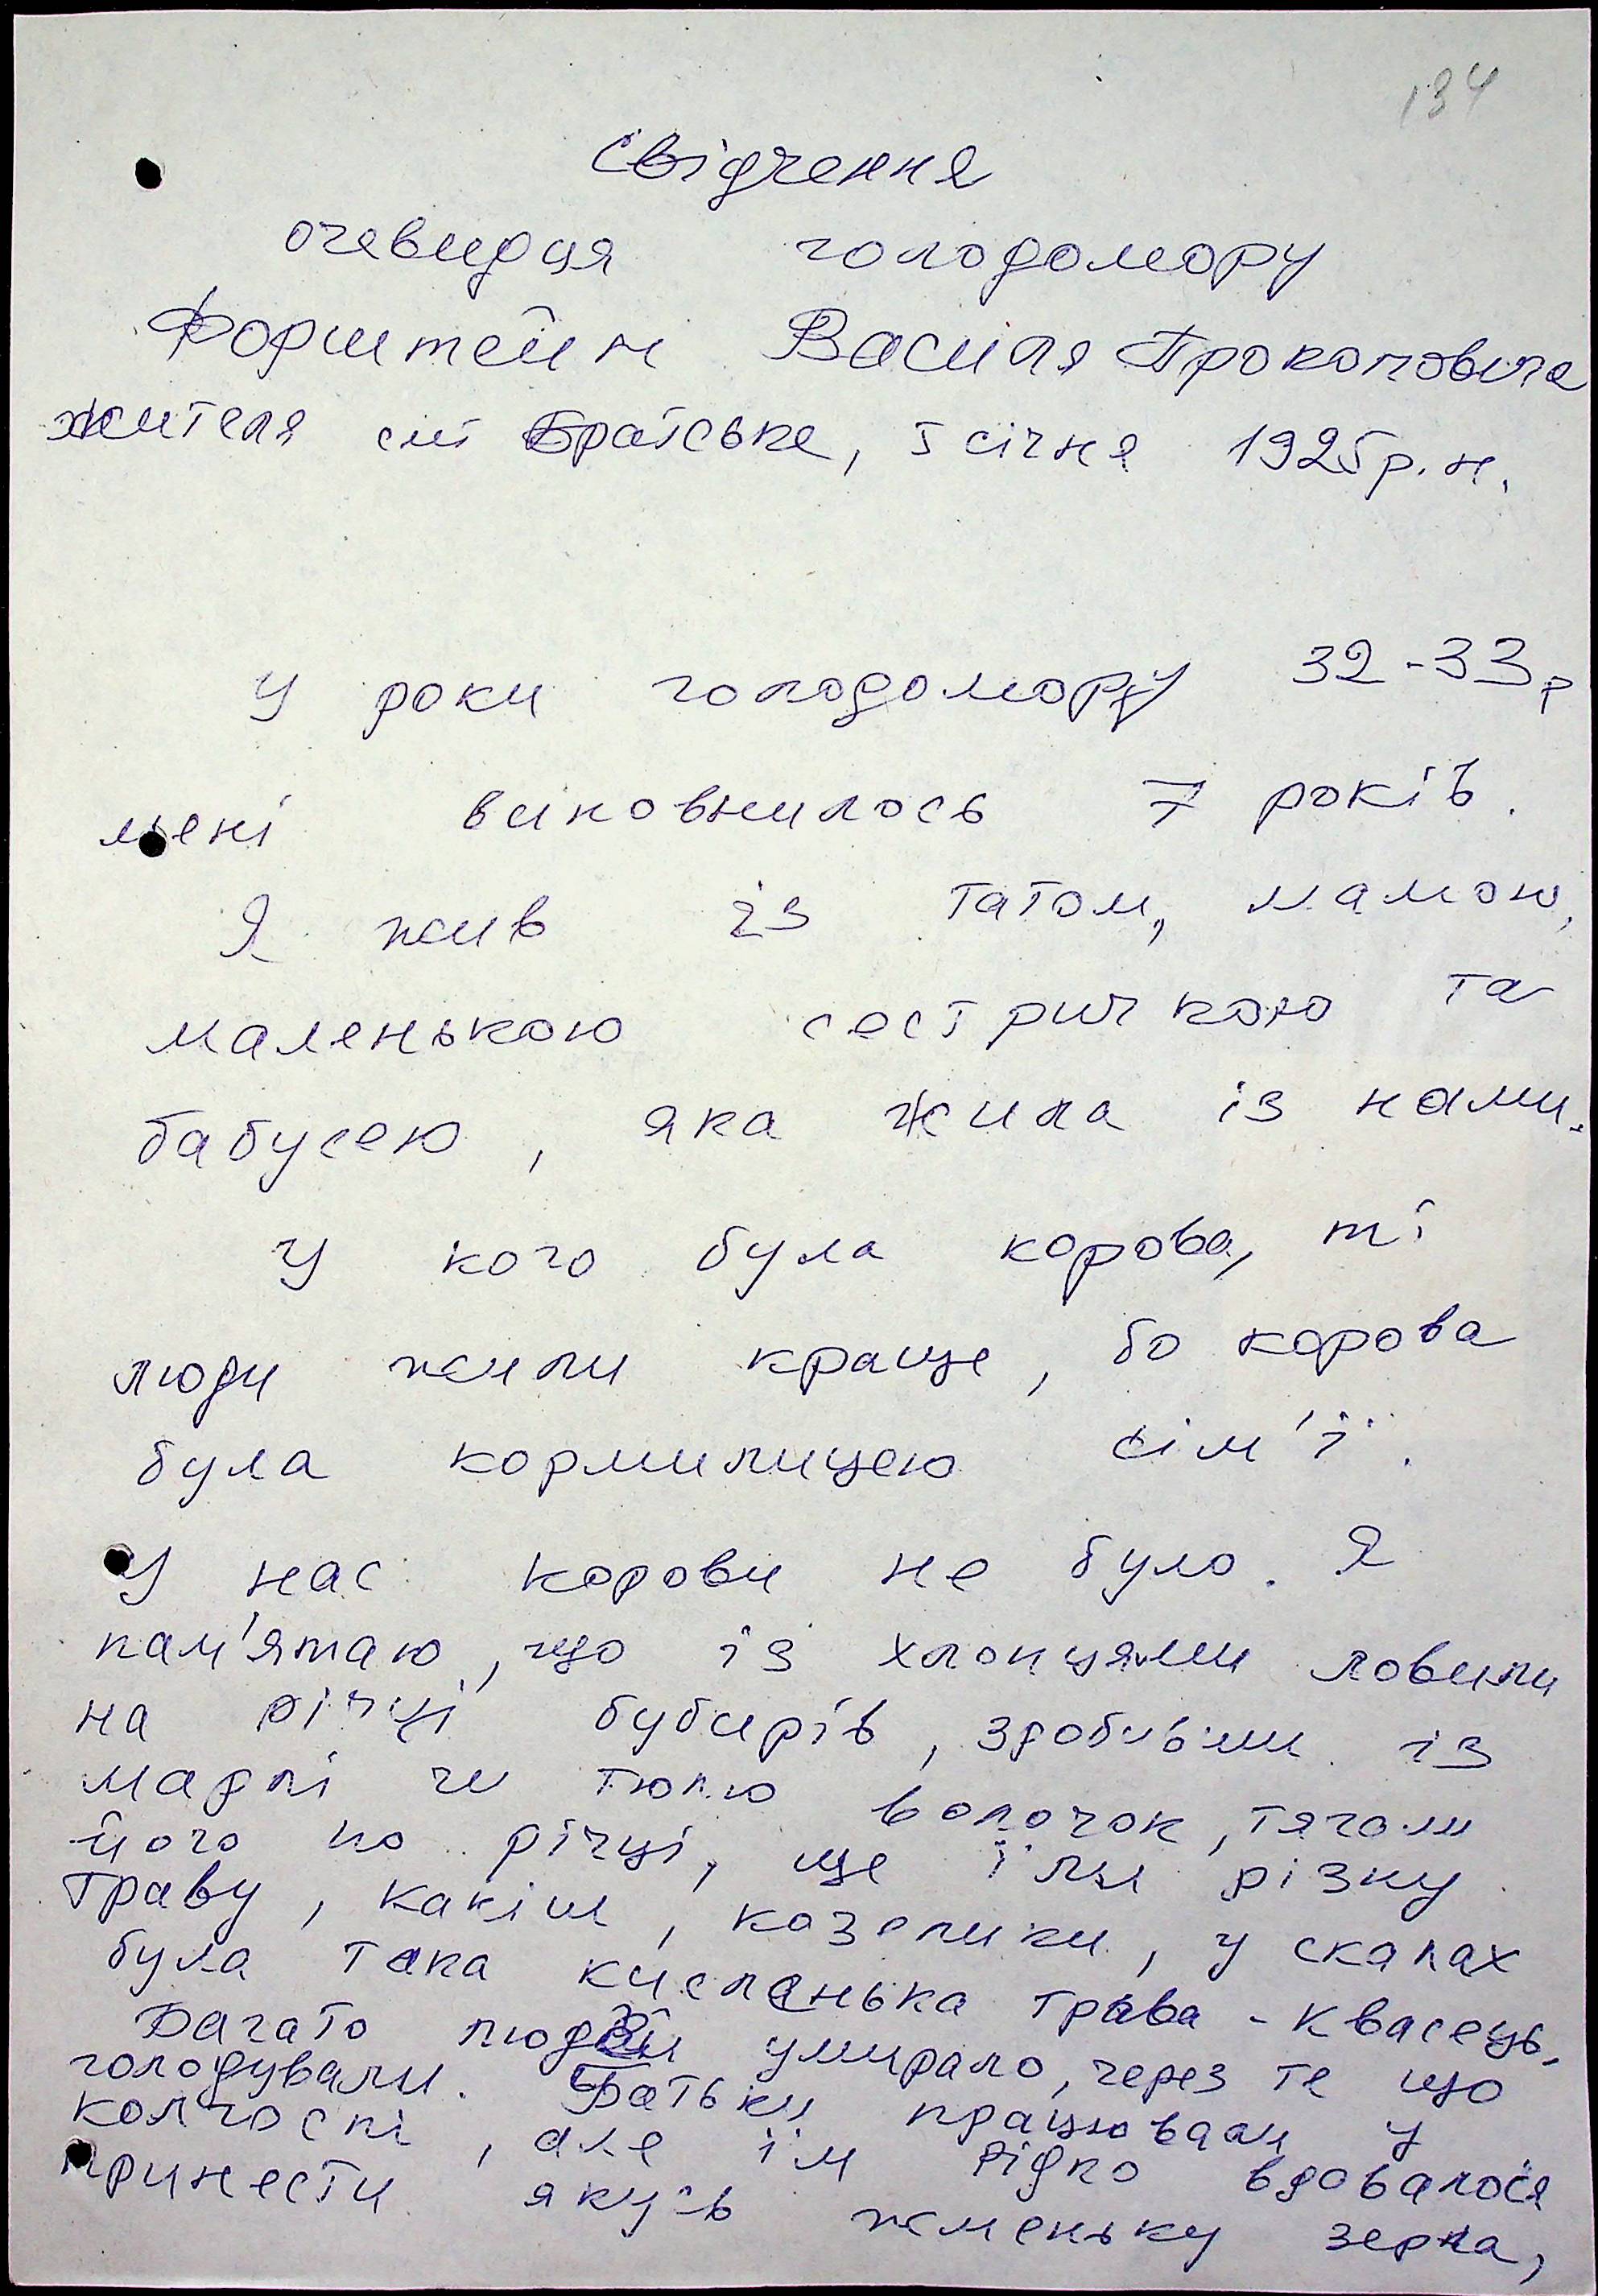 134
Свідчення
очевидця голодомору
Форштейн Василя Прокоповича
жителя смт Братське, 5 січня 1925 р.н.
У роки голодомору 32-33р
мені виповнилось 7 років.
Я жив із татом, мамою,
маленькою сестричкою та
бабусею, яка жила із нами.
У кого була корова, ті
люди жили краще, бо корова
була кормилицею сім'ї.
У нас корови не було. Я
пам'ятаю, що із хлопцями ловили
на річці бубирів, зробивши із
марлі чи тюлю волочок, тягали
його по річці, ще їли різну
траву, каліш, козелики, у скалах
була така кисленька трава - квасець.
Багато людей умирало, через те що
голодували. Батьки працювали у
колгоспі, але їм рідко вдавалося
принести якусь жменьку зерна,